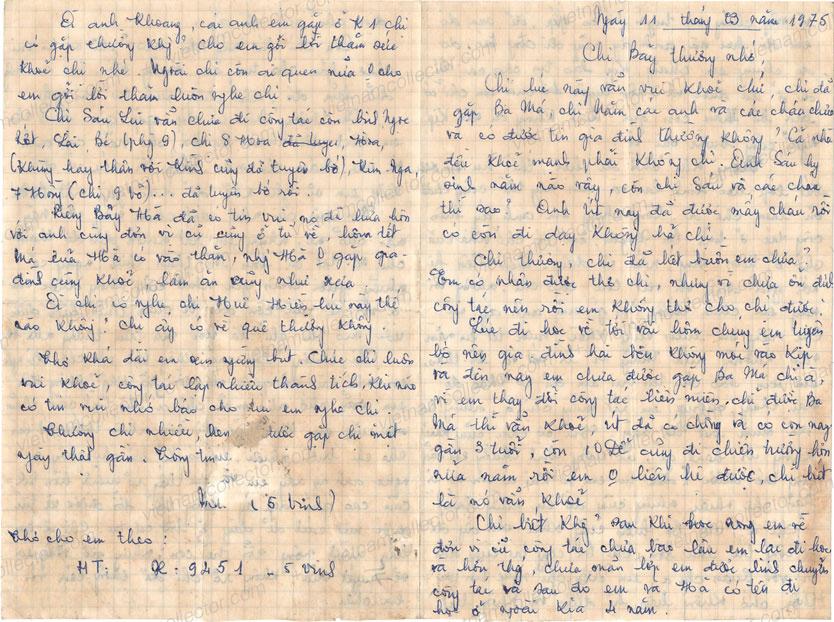 Ngày 11 tháng 03 năm 1975
Chị Bảy thương nhớ,
Chị lúc này vẫn vui khoẻ chứ, chị đã
gặp Ba Má, chị Năm các anh và các cháu chưa
và có được tin gia đình thường không? Cả nhà
đều khoẻ mạnh phải không chị. Anh Sáu hy
sinh năm nào vậy, còn chị Sáu và các cháu
thì sao? Anh Út nay đã được mấy cháu rồi
có còn đi dạy không hả chị
Chị thương, chị đã hết buồn em chưa?
Em có nhận được thơ chị, nhưng vì chưa ổn định
công tác nên rồi em không thơ cho chị được.
Lúc đi học về tới vài hôm chung em tuyên
bố nên gia đình hai bên không mời vào kịp
và đến nay em chưa được gặp Ba Má chị à,
vì em thay đổi công tác liên miên, chỉ được Ba
Má thì vẫn khoẻ, út đã có chồng và có con nay
gần 3 tuổi, còn 10 Để cũng đi chiến trường hơn
nửa năm rồi em 0 liên hệ được, chỉ biết
là nó vẫn khoẻ
Chị biết Khg? sau khi học xong em về
đơn vị cũ công tác chưa bao lâu em lại đi học
và hôn thg, chưa mãn lớp em được lịnh chuyển
công tác và sau đó em và Hà có tên đi
học ở ngoài kia 4 năm.
Ê! anh Khoang, các anh em gặp ở K1 chị
có gặp thường khg? cho em gởi lời thăm sức
khoẻ chị nhé. Ngoài chị còn ai quen nữa 0 cho
em gởi lời thăm luôn nghe chị.
Chị Sáu Lùi vẫn chưa đi công tác còn bịnh ngoe
hết, Lài, Bé (phg 9), chị 8 Hoa, Hòa,
(Khùng hay thân với Kính cũng đã tuyên bố), Kim Nga,
7 Hồng (chị 9 bồ)... đã tuyên bố rồi.
Riêng Bảy Hà đã có tin vui, nó đã hứa hôn
với anh cùng đơn vị cũ cũng ở tù về, hôm tết
Má của Hà có vào thăm, nhg Hà 0 gặp, gia
đình cũng khoẻ, làm ăn cũng như xưa.
Ê! chị có nghe chị Huê Hiên lúc này thế
nào không? Chị ấy có về quê thường không.
Thơ khá dài em xin ngừng bút. Chúc chị luôn
vui khoẻ, công tác lập nhiều thành tích, khi nào
có tin vui nhớ báo cho tụi em nghe chị.
Thương chị nhiều, hẹn ước gặp chị một
ngày thật gần.
(5 Vinh)
Thơ cho em theo:
HT: X: 9451 - 5 Vinh
vietnamcollector.com